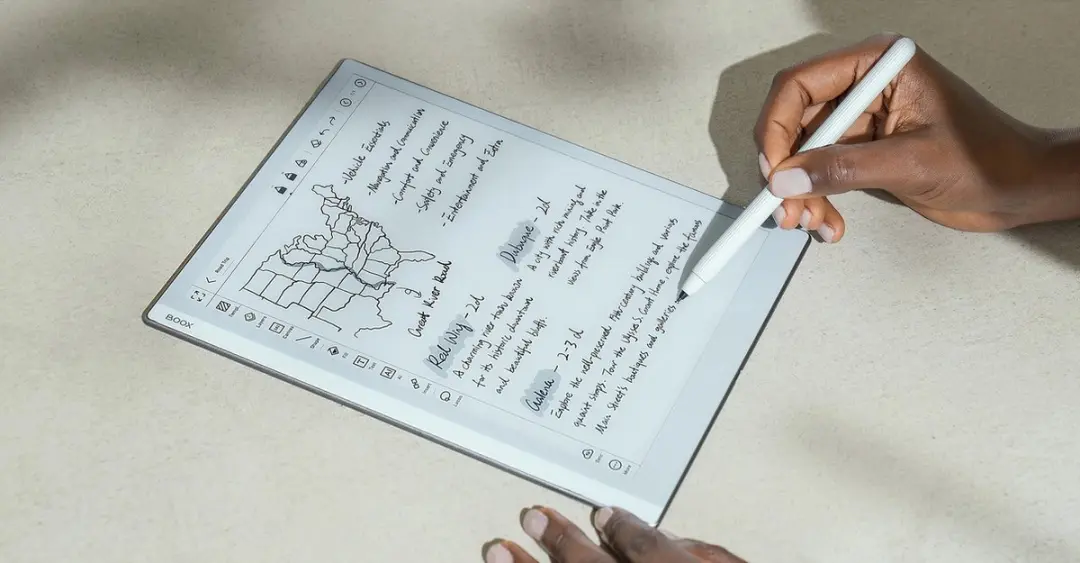 BOOX
Road Trip
-Vehicle Essentials
-Navigation and Communication
-Comfort and Convenience
-Safety and Emergency
-Entertainment and Extra
Great River Road
Red Wing - 2d
A charming river town known
for its historic downtown
and beautiful bluffs.
Dubuque - 2d
A city with rich mining and
riverboat history. Take in the
views from Eagle Point Park
Galena - 2-3 d
Explore the well-preserved 19th-century buildings and various
quaint shops. Tour the Ulysses S. Grant Home explore the famous
Main Street's boutiques and galleries
Layers
Shape
Fill
Text
AI
Insert
Lasso
Sync
More